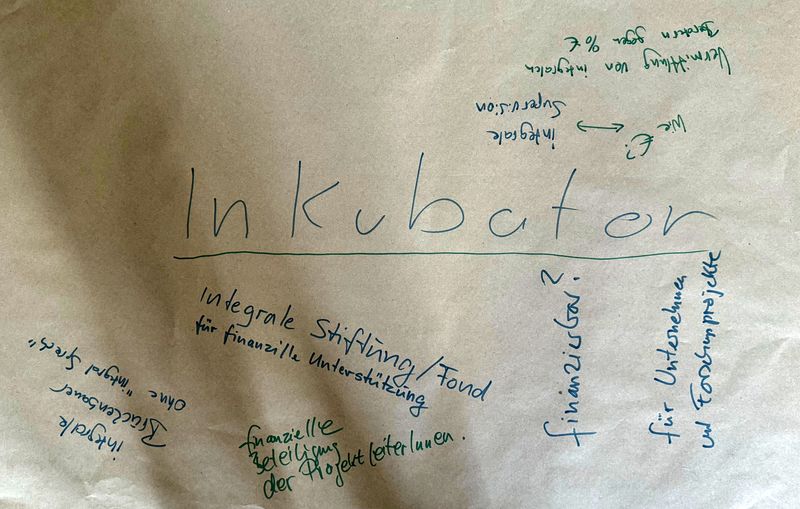 Vermittlung von integralen
Beratern gegen % €
integrale
Supervision
Wie
€?
Inkubator
Integrale Stiftung/Fond
für finanzille Unterstützung
finanzierbar?
für Unternehmen
und Forschunprojekte
integrale
Brückenbauer
ohne "integral Speec"
finanzielle
Beteiligung
der ProjektleiterInnen.